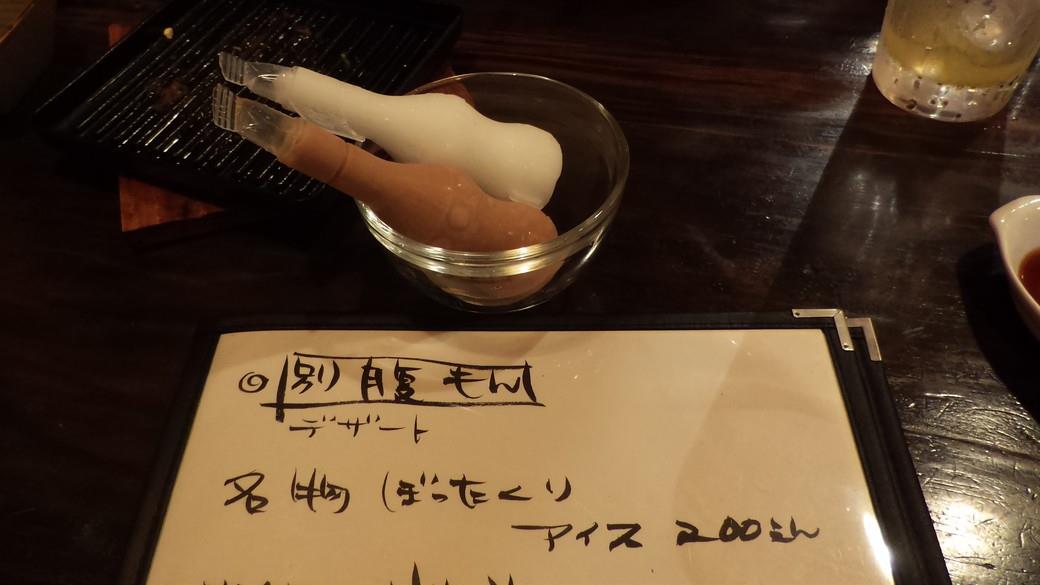 ◎別腹もん
デザート
名物 ぼったくり
アイス 200えん